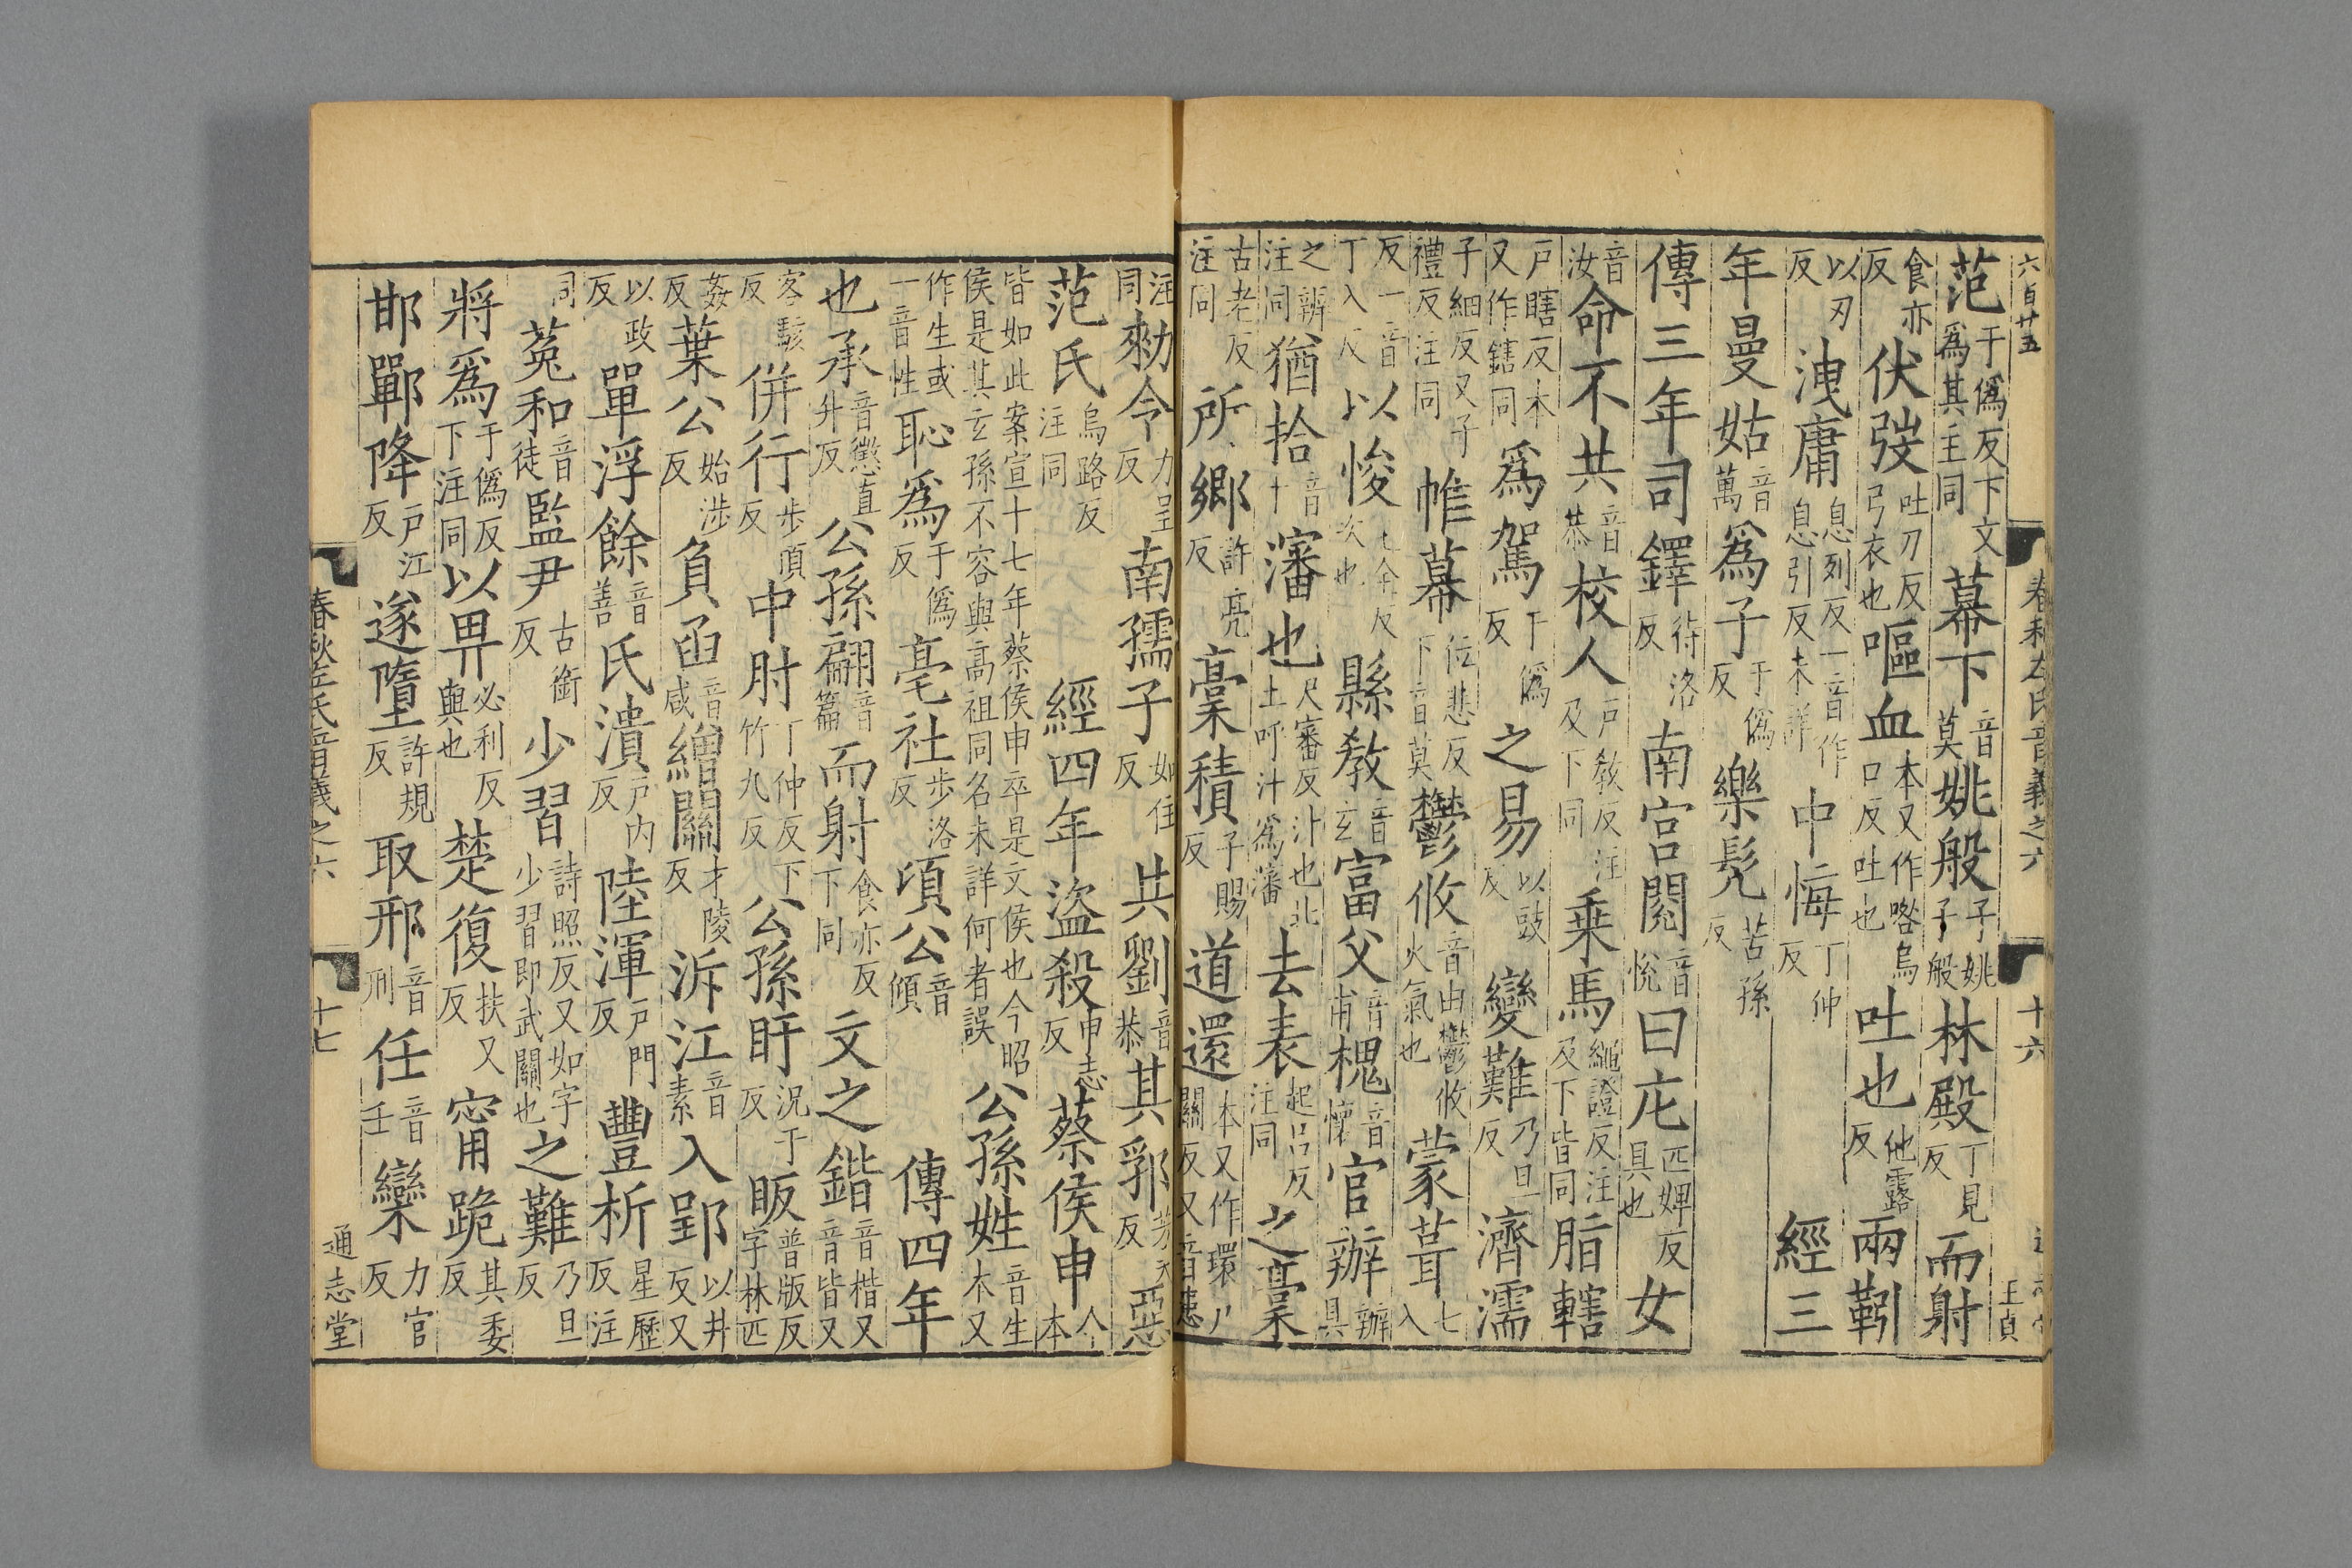 六百廿五 春秋左氏音義之六 十六 王貞
范于僞反下文爲其主同幕下音莫姚般子姚子般林殿丁見反而射
食亦反伏弢吐刀反弓衣也嘔血本又作喀烏口反吐也吐也他露反兩靷
以刃反洩庸息列反一音作息引反未詳中悔丁仲反 經三
年曼姑音萬爲子于僞反樂髠苦孫反
傳三年司鐸待洛反南宮閱音悅曰庀匹婢反具也女
音汝命不共音恭校人戶敎反注及下同乗馬繩證反注及下皆同脂轄
戶瞎反本又作鎋同爲駕于僞反之易以豉反變難乃旦反濟濡
子細反又子禮反注同帷幕位悲反下音莫鬱攸音由鬱攸火氣也蒙葺七入
反一音丁入反以悛七全反次也縣敎音玄富父音甫槐音懷官辦辦具
之辦注同猶拾音十瀋也尺審反汁也北土呼汁爲瀋去表起呂反注同之稾
古老反注同所鄉許亮反稾積子賜反道還本又作環戶關反又音患
注同勑令力呈反南孺子如住反共劉音恭其郛芳夫反惡
范氏烏路反注同 經四年盜殺申志反蔡侯申今本
皆如此案宣十七年蔡侯申卒是文侯也今昭侯是其玄孫不容與高祖同名未詳何者誤公孫姓音生本又
作生或一音性恥爲于僞反亳社步洛反頃公音傾 傳四年
也承音懲直升反公孫翩音篇而射食亦反下同文之鍇音楷又音皆又
客駭反併行步頂反中肘丁仲反下竹九反公孫盱況于反眅普版反字林匹
姦反葉公始涉反負函音咸繒關才陵反泝江音素入郢以井反又
以政反單浮餘音善氏潰戶内反陸渾戶門反豐析星歷反注
同菟和音徒監尹古銜反少習詩照反又如字少習即武關也之難乃旦反
將爲于僞反下注同以畀必利反與也楚復扶又反甯跪其委反
邯鄲降戶江反遂墮許規反取邢音刑任音壬欒力官反
春秋左氏音義之六 十七 通志堂